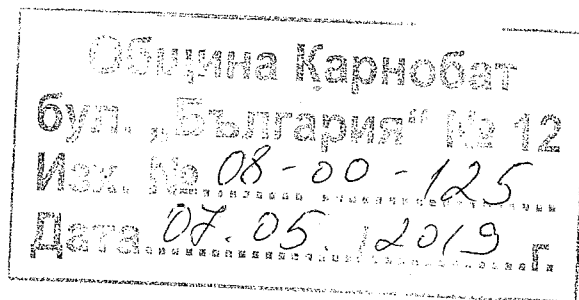 Община Карнобат
бул. „България“ № 12
Изх. № 08-00-125
Дата 07.05.2019 г.